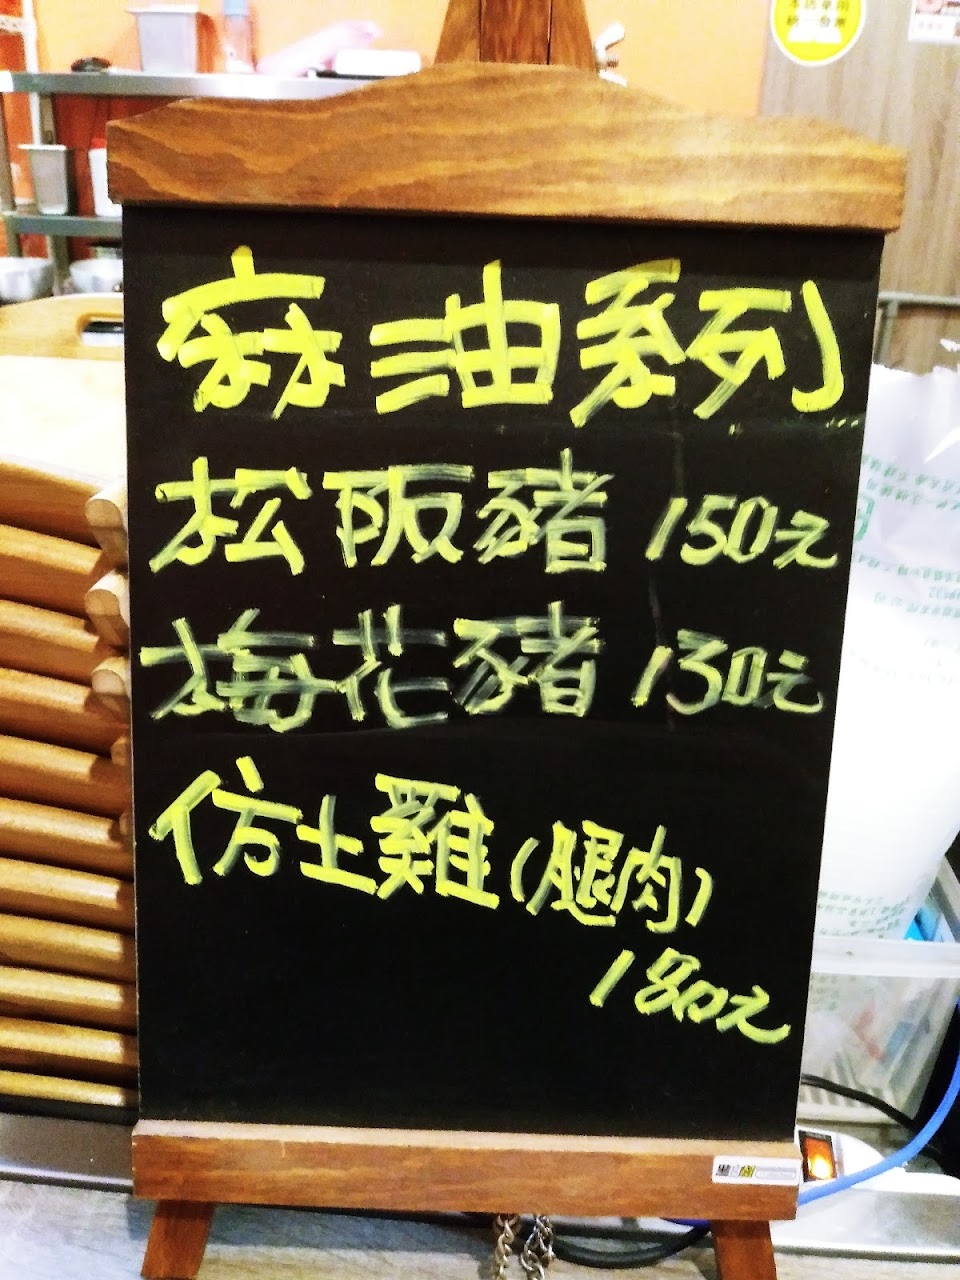 麻油系列
松阪豬 150元
梅花豬 130元
仿土雞(腿肉)
180元